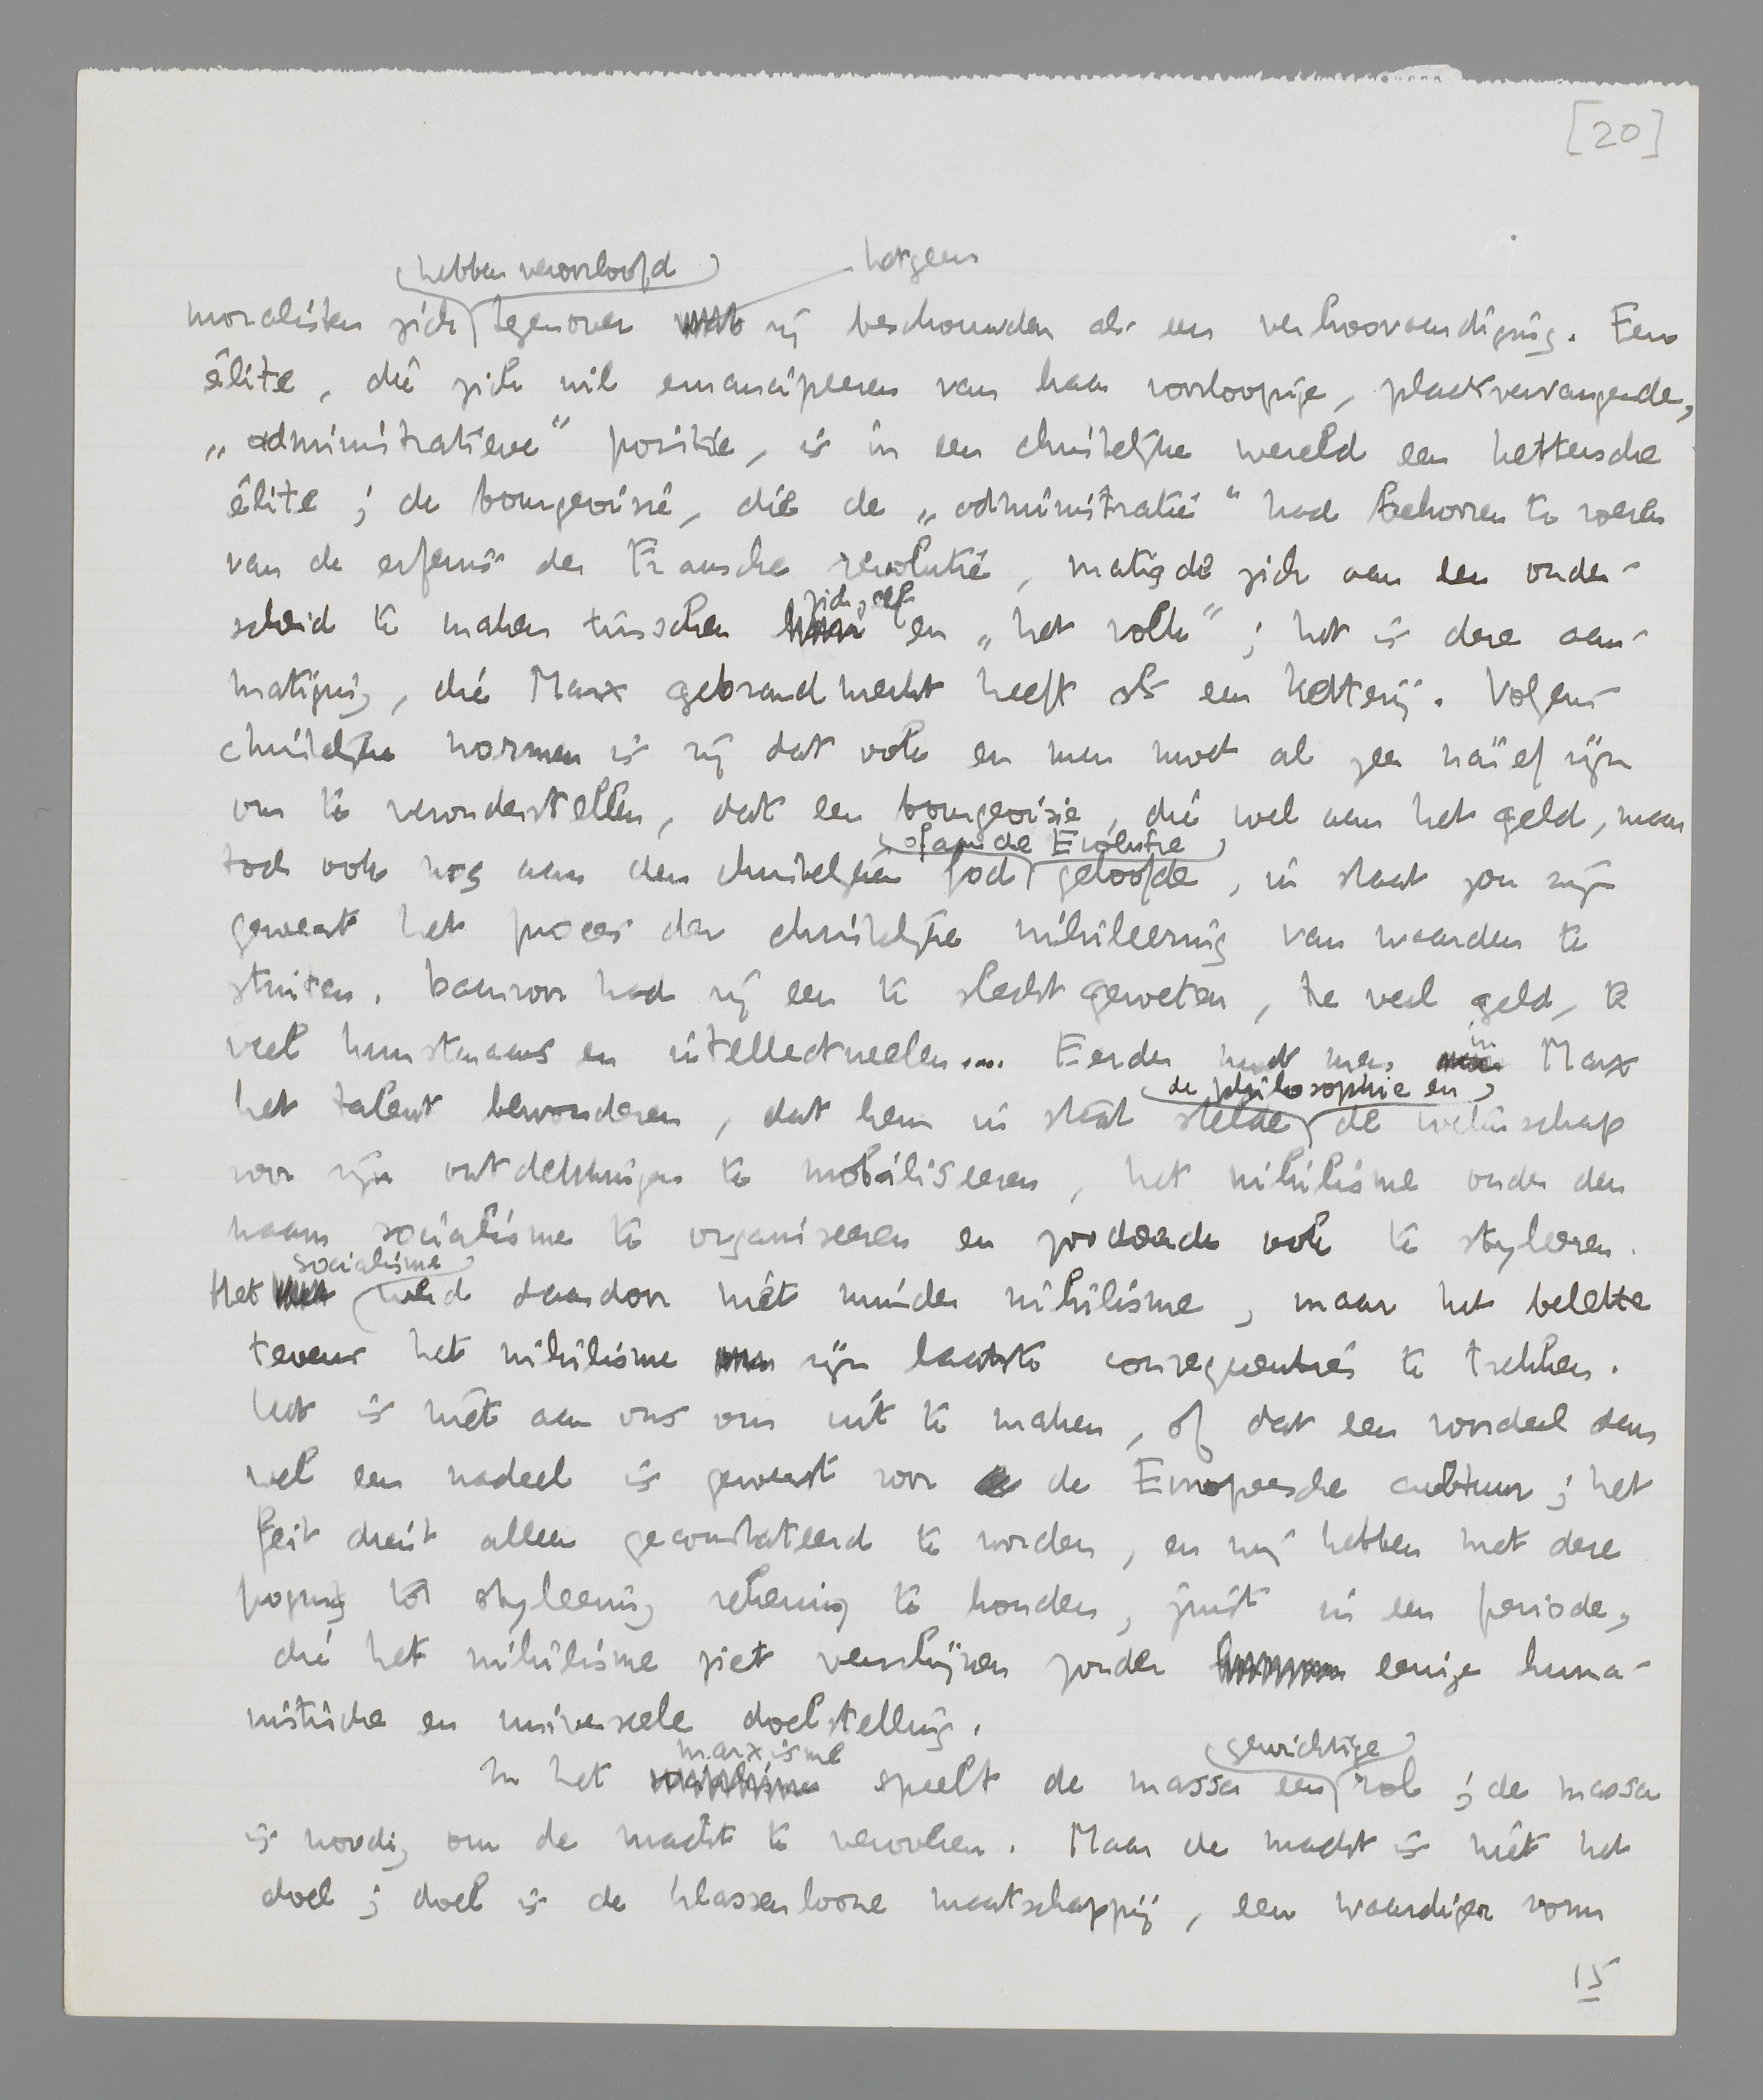 [20]
hebben veroorloofd hetgeen
moralisten zich tegenover zij beschouwden als een verhoovaardiging. Een
élite, die zich wil emancipeeren van haar voorloopige, plaatsvervangende,
„administratieve" positie, is in een christelijke wereld een kettersche
élite; de bourgeoisie, die de „administratie" had behooren te voeren
van de erfenis der Fransche revolutie, matigde zich aan een onder-
zichzelf
scheid te maken tusschen en „het volk"; het is deze aan-
matiging, die Marx gebrandmerkt heeft als een ketterij. Volgens
christelijke normen is zij dat ook en men moet al zeer naïef zijn
om te veronderstellen, dat een bourgeoisie, die wel aan het geld, maar
of aan de Evolutie
toch ook nog aan den christelijken God geloofde, in staat zou zijn
geweest het proces der christelijke nihileering van waarden te
stuiten. Daarvoor had zij een te slecht geweten, te veel geld, te
veel kunstenaars en intellectueelen.... Eerder moet men
in
Marx
de philosophie en
het talent bewonderen, dat hem in staat stelde de wetenschap
voor zijn ontdekkingen te mobiliseeren, het nihilisme onder den
naam socialisme te organiseeren en zoodoende ook te styleeren.
socialisme
Het werd daardoor niet minder nihilisme, maar het belette
tevens het nihilisme zijn laatste consequenties te trekken.
Het is niet aan ons om uit te maken, of dat een voordeel dan
wel een nadeel is geweest voor de Europeesche cultuur; het
feit dient alleen geconstateerd te worden, en wij hebben met deze
poging tot styleering rekening te houden, juist in een periode,
die het nihilisme ziet verschijnen zonder eenige huma-
nistische en universeele doelstelling.
marxisme gewichtige
In het speelt de massa een rol; de massa
is noodig om de macht te veroveren. Maar de macht is niet het
doel; doel is de klassenlooze maatschappij, een waardiger vorm
15